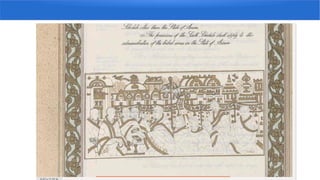 Schedule other than the State of Assam.
(2) The provisions of the Sixth Schedule shall apply to the
administration of the tribal areas in the State of Assam